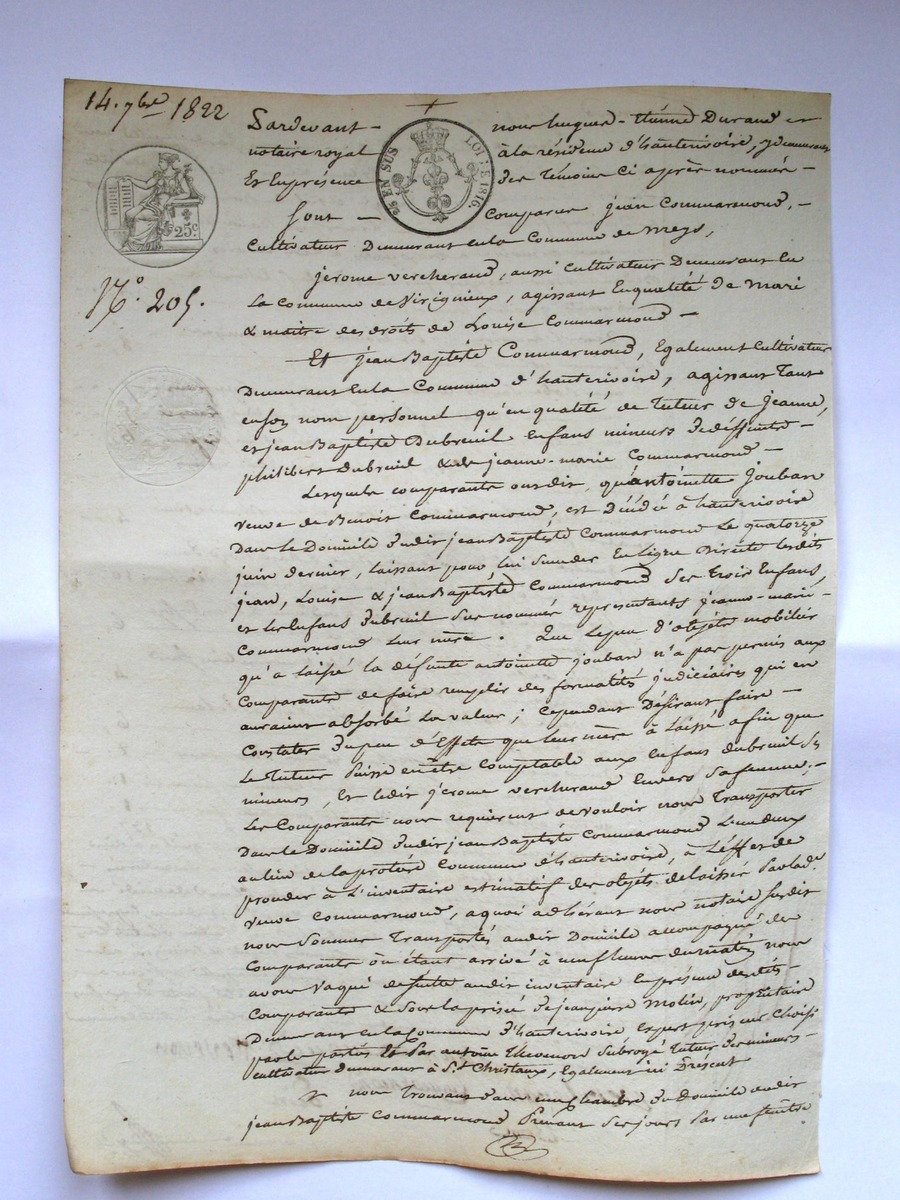 14. 7bre 1822
Pardevant - nous hugues - Etienne Durand
notaire royal à la résidence d'hauterivoire, y demeurant
Et En présence des Témoins Ci après nommés -
25 EN SUS LOI DE 1816
25c
Sont - Comparus jean Commarmond, -
Cultivateur Demeurant En la Commune de Meys,
N.º 205.
jerome vercherand, aussi Cultivateur Demeurant En
La Commune de Virigneux, agissant En qualité De Mari
& maitre des droits de Louise Commarmond -
Et jean Baptiste Commarmond, Egalement Cultivateur
Demeurant En la Commune d'hauterivoire, agissant Tant
en son nom personnel qu'en qualité de Tuteur de jeanne,
et jean Baptiste Dubreuil Enfans mineurs de deffunts -
philibert Dubreuil & de jeanne-marie Commarmond -
Lesquels comparants ont dit, qu'antoinette jouban
veuve de Benoit Commarmond, est Décédée à hauterivoire
Dans le Domicile Dudit jean Baptiste Commarmond Le quatorze
juin dernier, laissant pour lui Succéder En ligne Directe lesdits
jean, Louise & jean Baptiste Commarmond Ses trois Enfans,
et les Enfans Dubreuil Sus nommés représentants jeanne-marie -
Commarmond Leur mère. Que Le peu d'objets mobiliers
qu'a laissé la défunte antoinette jouban n'a pas permis aux
Comparants de faire remplir des formalités judiciaires qui en
auraient absorbé La valeur; Cependant Désirant faire -
Constater Du peu d'Effets que leur mère à Laissé afin que
Le Tuteur Puisse en être Comptable aux Enfans dubreuil
mineurs, Et ledit jérome vercherand Envers Sa femme; -
Les Comparants nous requièrent de vouloir nous Transporter
Dans le Domicile dudit jean Baptiste Commarmond
au lieu de la commune d'hauterivoire, à L'effet de
procéder à L'inventaire estimatif des objets délaissés Par lade
veuve Commarmond, a quoi adhérant nous notaire Susdit
nous Sommes Transportés audit Domicile accompagné des
Comparants où étant arrivé à neuf heures du matin, nous
avons Vaqué de suite audit inventaire En présence desdits -
Comparants & Sous la prisée De jean pierre Molin, propriétaire
Demeurant En la Commune D'hauterivoire Expert priseur Choisi
par les parties Et Par antoine Thevenon Subrogé Tuteur Des mineurs -
cultivateur demeurant à St Christaux, Egalement ici Présent
nous Trouvons dans une chambre Du Domicile dudit
jean Baptiste Commarmond Prenant Ses jours Par une fenêtre